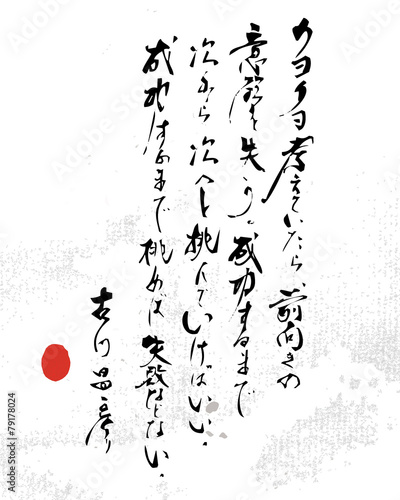 クヨクヨ考えていたら、前向きの
意欲を失う。成功するまで
次から次へと挑んでいけばいい。
成功するまで挑めば失敗などない。
古川昌彦
Adobe Stock | #79178024